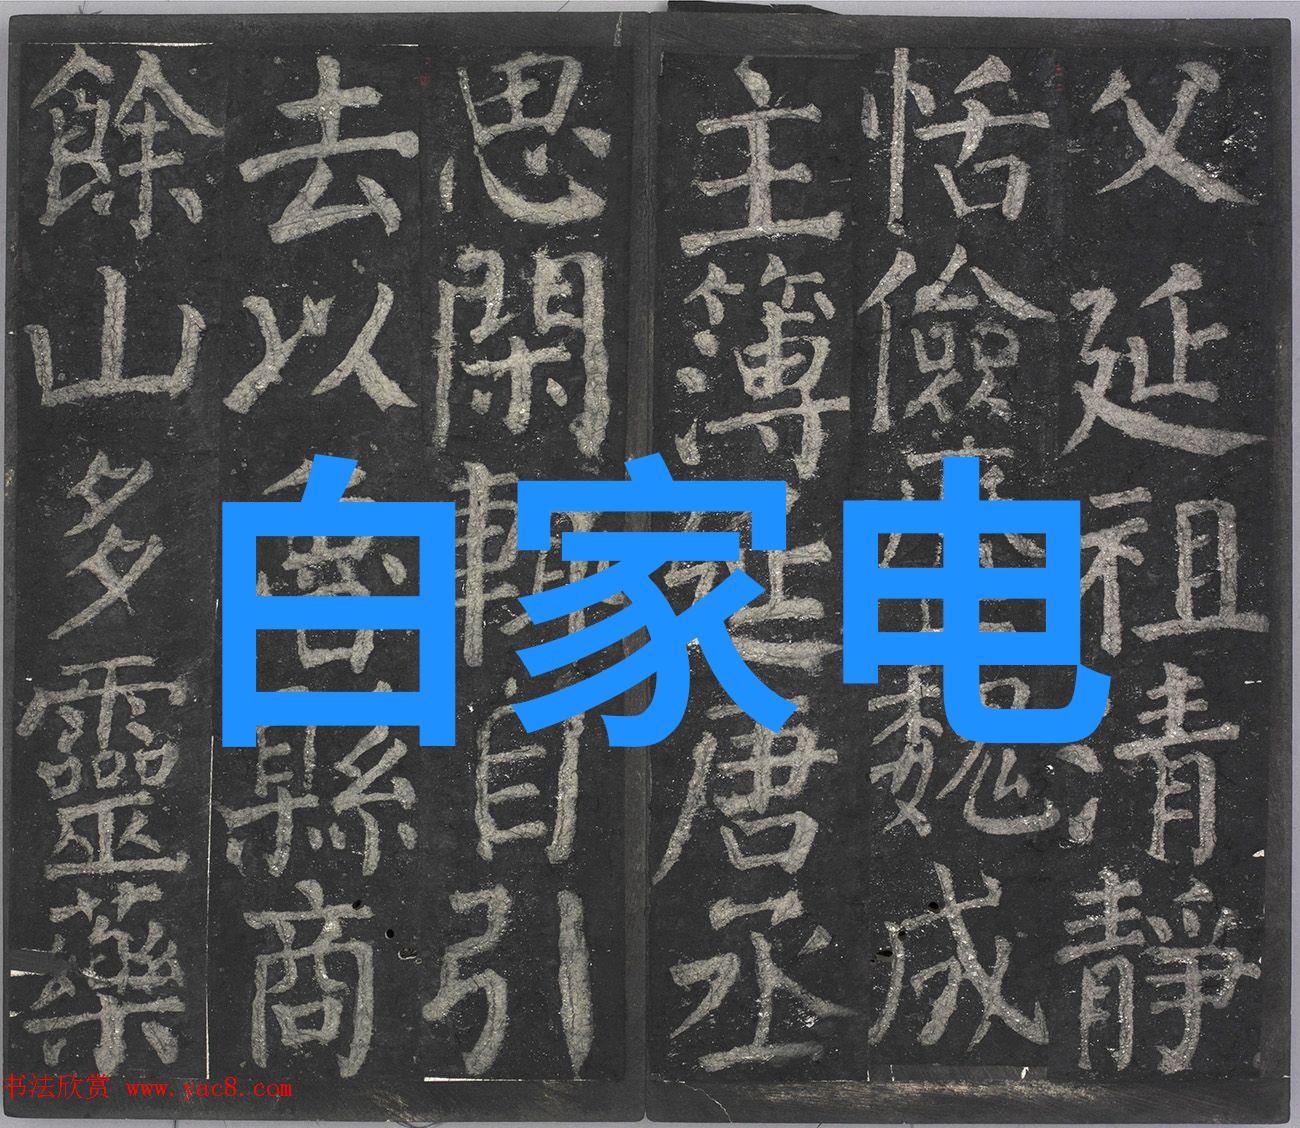 父延祖清靜
恬儉歷魏成
主簿延唐丞
思閑輒自引
去以魯縣商
餘山多靈藥
自家电
书法欣赏 www.yac8.com